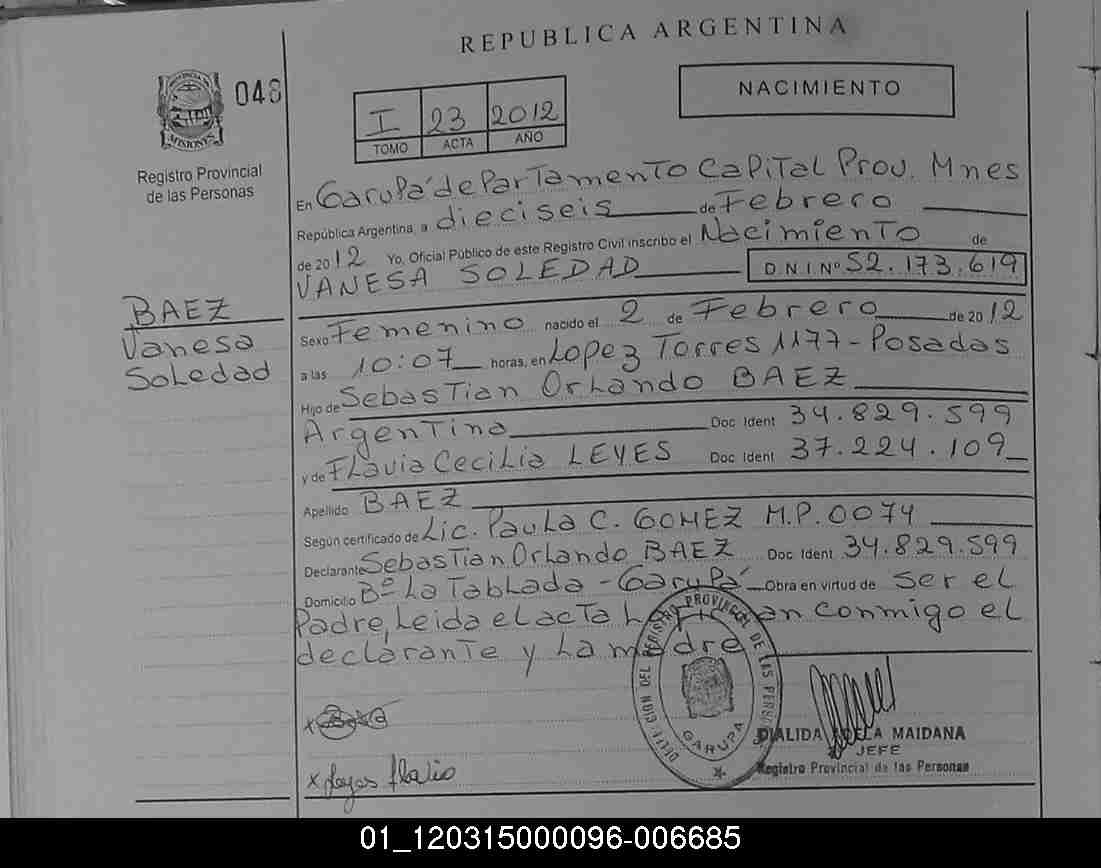 REPUBLICA ARGENTINA
PROVINCIA DE
MISIONES
048
Registro Provincial
de las Personas
I 23 2012
TOMO ACTA AÑO
NACIMIENTO
En Garupá departamento Capital Prov. Mnes
República Argentina, a dieciseis de Febrero
de 2012 Yo, Oficial Público de este Registro Civil inscribo el Nacimiento de
VANESA SOLEDAD DNI Nº 52.173.619
BAEZ
Vanesa
Soledad
Sexo Femenino nacido el 2 de Febrero de 2012
a las 10:07 horas, en Lopez Torres 1177 - Posadas
Hijo de Sebastian Orlando BAEZ
Argentina Doc Ident 34.829.599
y de Flavia Cecilia LEYES Doc Ident 37.224.109
Apellido BAEZ
Según certificado de Lic. Paula C. GOMEZ M.P. 0074
Declarante Sebastian Orlando BAEZ Doc Ident 34.829.599
Domicilio Bº La Tablada - Garupá Obra en virtud de ser el
Padre, Leida el acta conmigo el
declarante y La madre
DEL REGISTRO PROVINCIAL DE LAS PERSONAS
GARUPA
x
x Leyes Flavia
MAIDANA
JEFE
Registro Provincial de las Personas
01_120315000096-006685